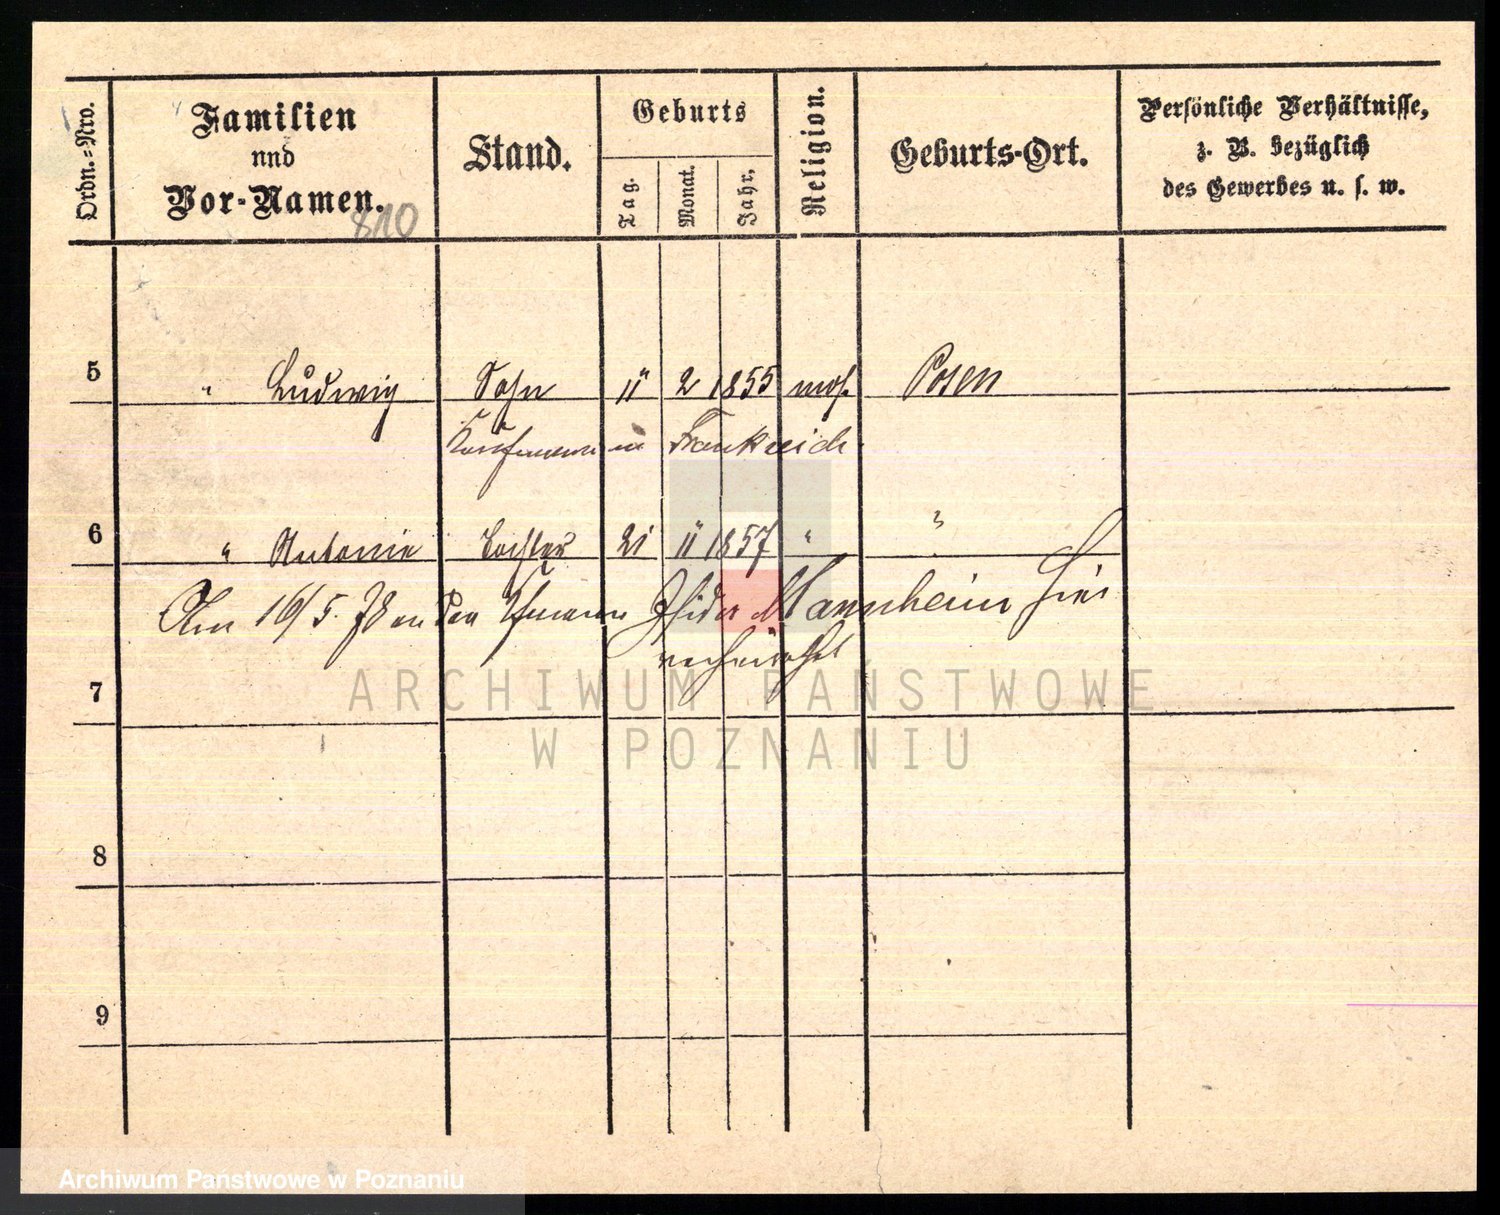 Ordn.=Nro.
Familien
nnd
Vor-Namen.
810
Stand.
Geburts
Tag.
Monat.
Jahr.
Religion.
Geburts-Ort.
Persönliche Verhältnisse,
z. B. bezüglich
des Gewerbes u. s. w.
5 " Ludwig Sohn 11 2 1855 mos. Posen
Kaufmann in Frankreich
6 " Antonie Tochter 21 11 1857 " "
Am 16/5. 78 an den Kfmann Isidor Mannheim hier
verheirathet
7
ARCHIWUM PAŃSTWOWE
W POZNANIU
8
9
Archiwum Państwowe w Poznaniu